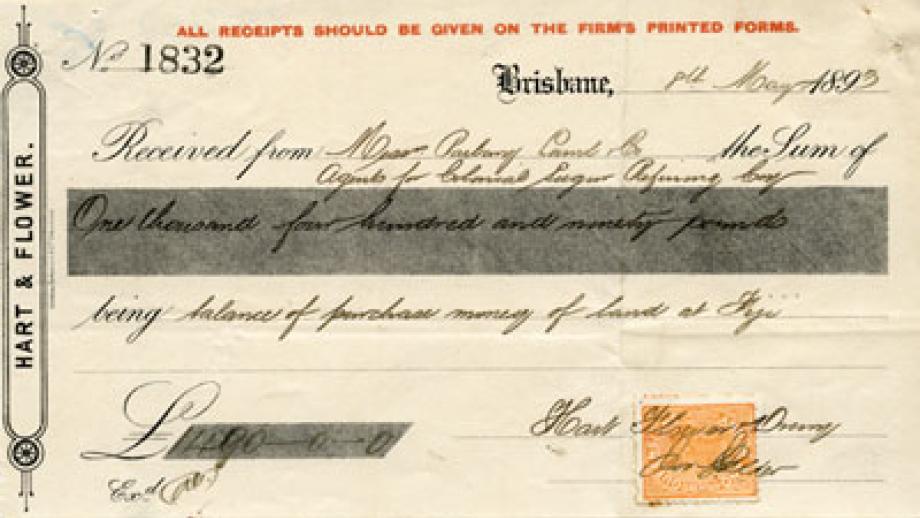 ALL RECEIPTS SHOULD BE GIVEN ON THE FIRM'S PRINTED FORMS.
No 1832
Brisbane, 8th May 1893
Received from Messrs Parbury Lamb & Co the Sum of
Agents for Colonial Sugar Refining Coy
One thousand four hundred and ninety pounds
being balance of purchase money of land at Fiji
£ 1490-0-0
Hart Flower & Drury
Exd
HART & FLOWER.